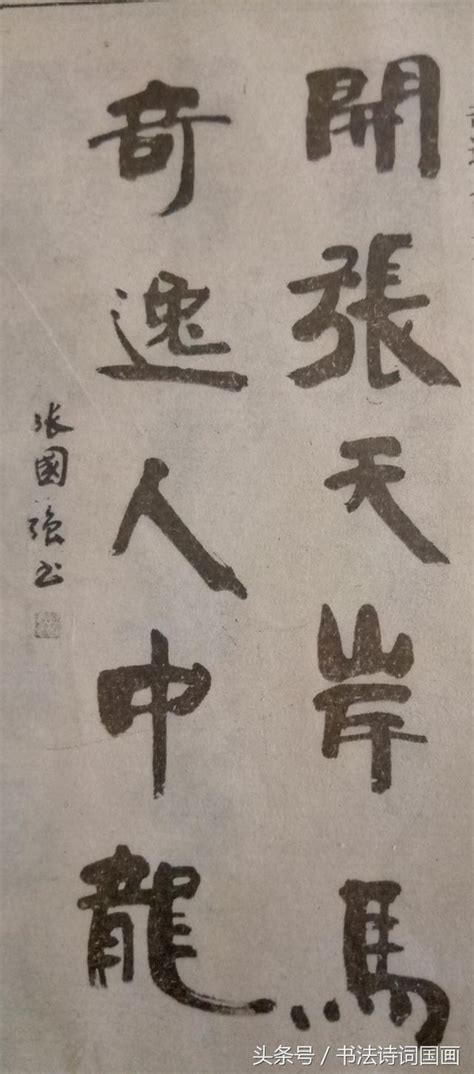 開張天岸馬
奇逸人中龍
張國強书
头条号／书法诗词国画